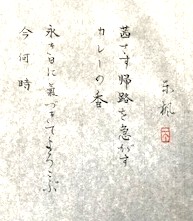 茜さす帰路を急がす
カレーの香
永き日に気づきてよろこぶ
今何時